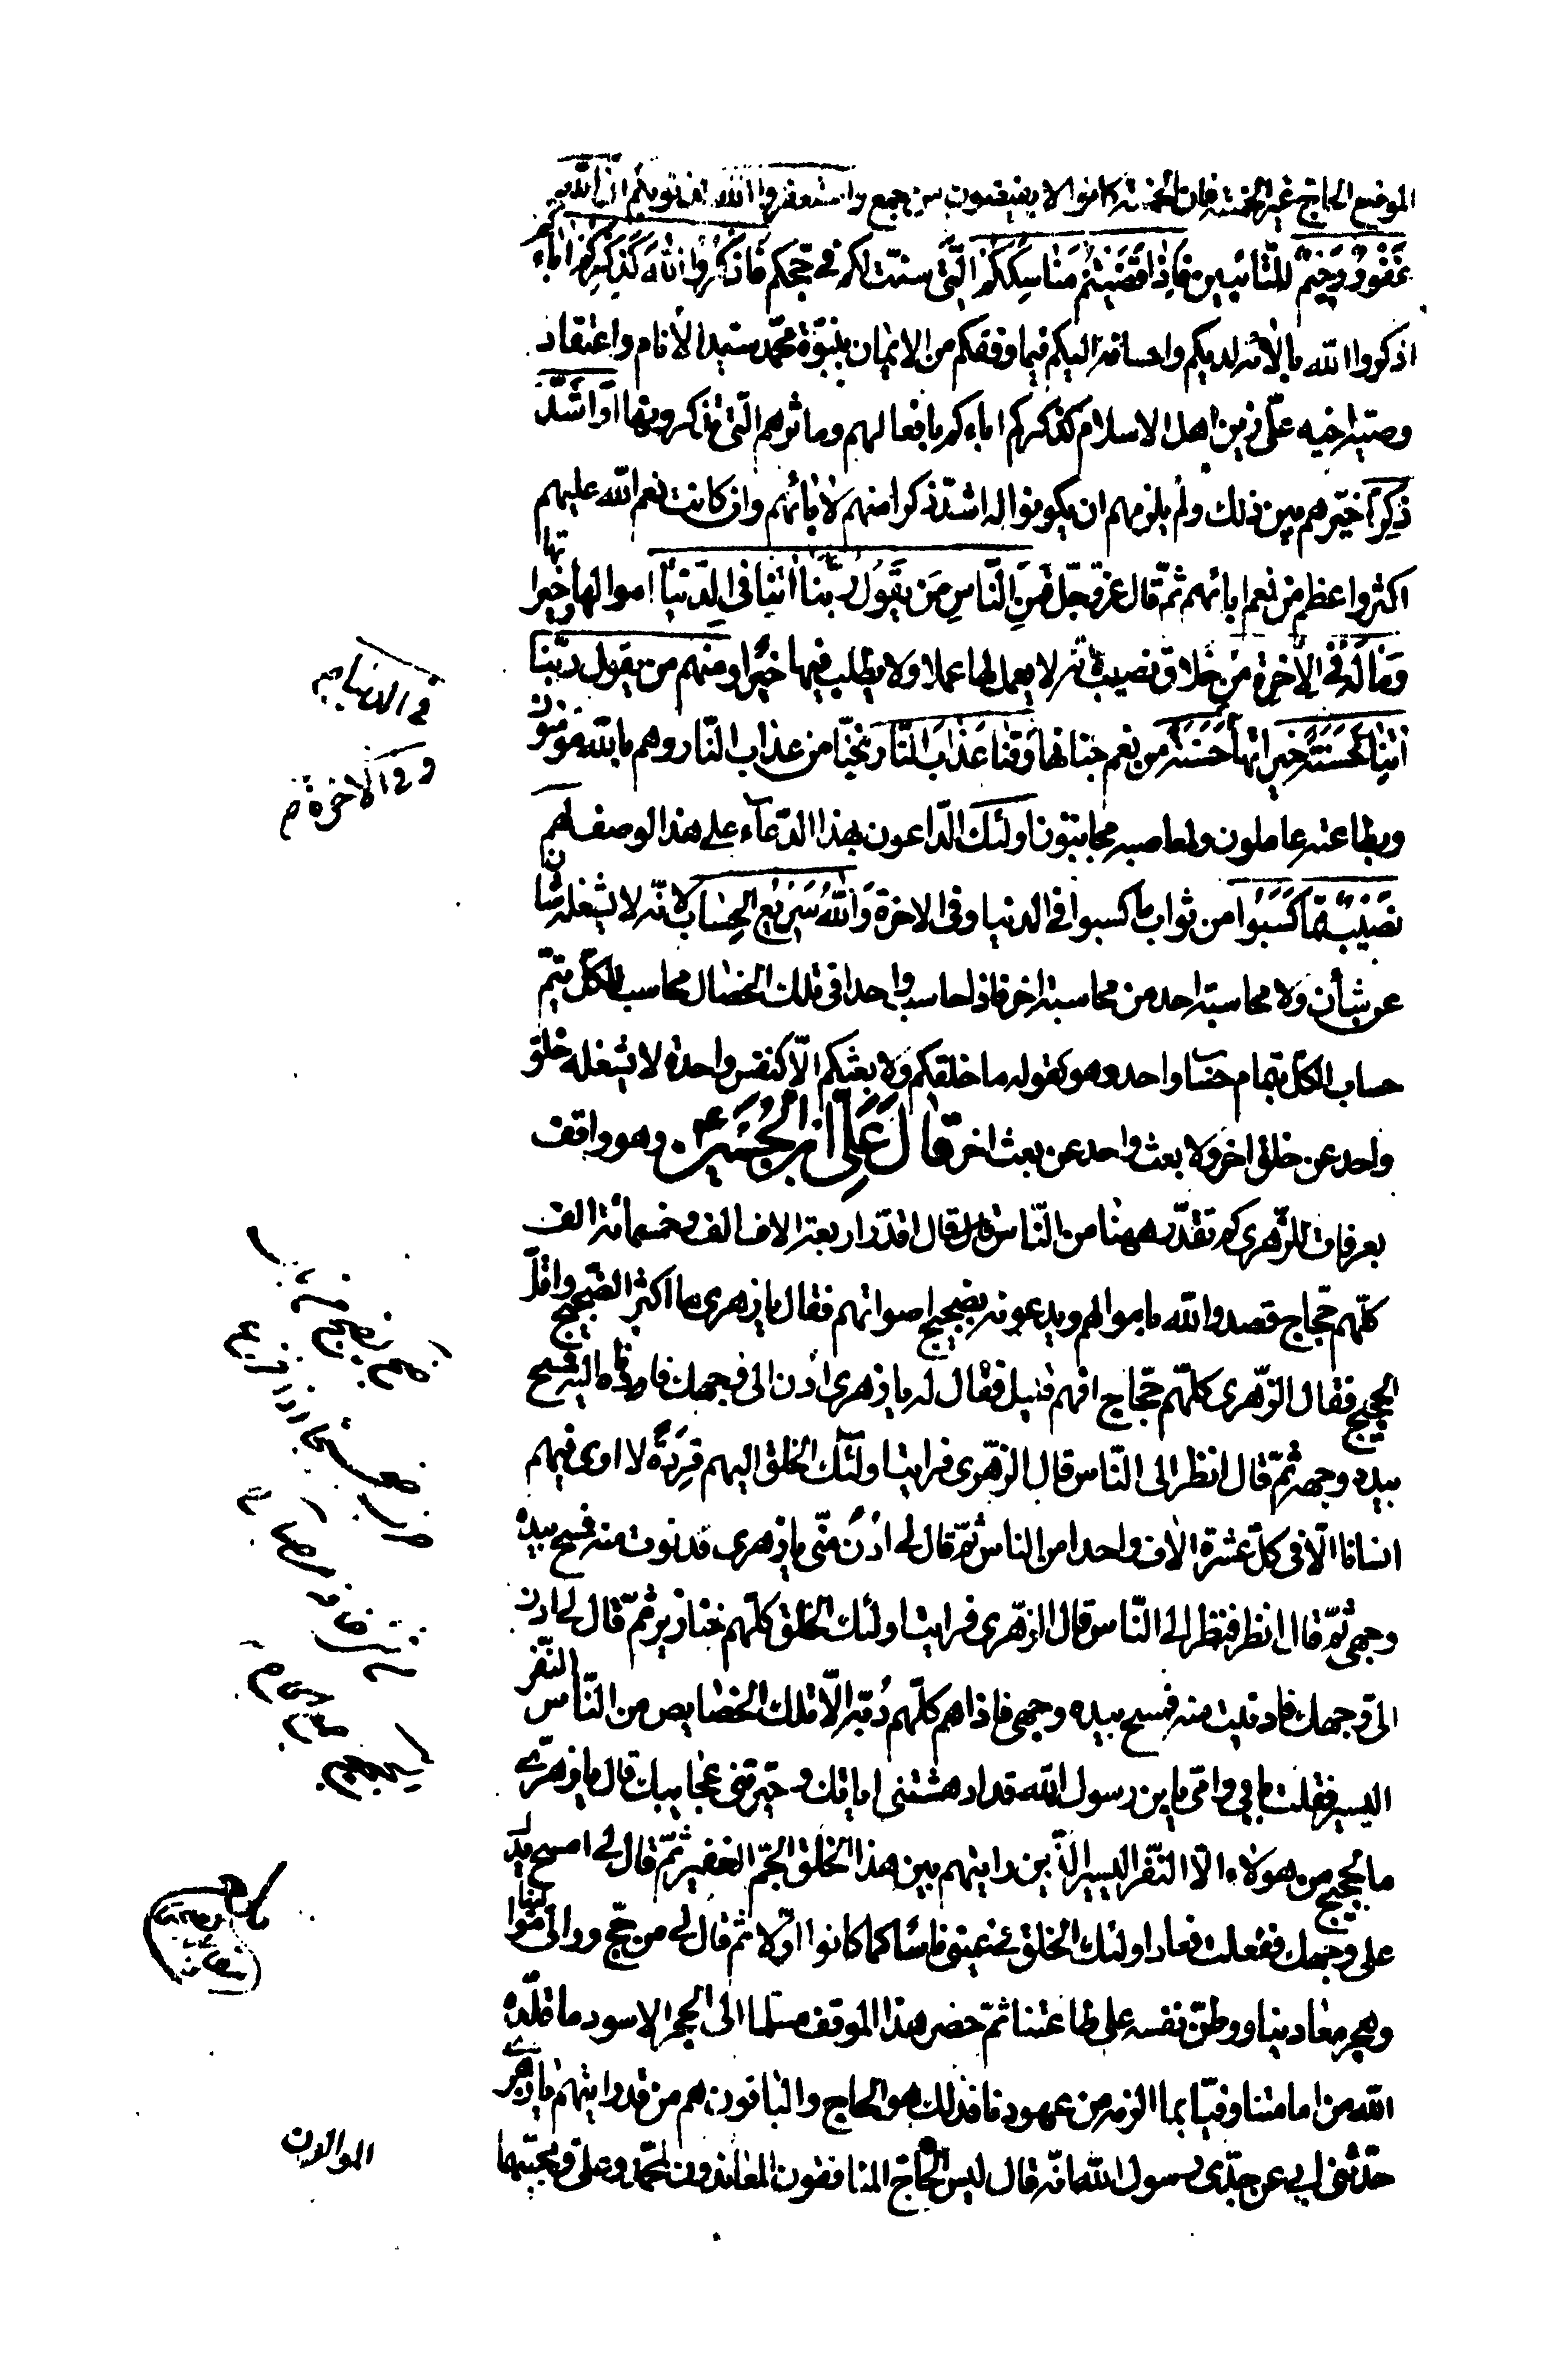 الموضع الحاج غير الحمس فان الحمس كانوا لا يفيضون من جمع واستغفروا الله لذنوبكم ان الله
غَفُورٌ رَحِيمٌ للتّائبين فَاِذَا قَضَيْتُمْ مَنَاسِكَكُمْ الّتى سنت لكم فى حجكم فَاذْكُرُوا اللهَ كَذِكْرِكُمْ اٰبَاءَكُمْ
اذكروا الله بالائه لديكم واحسانه اليكم فيما وفقكم من الايمان بنبوّة محمّد سيد الانام واعتقاد
وصيّة اخيه علىّ زين اهل الاسلام كذكركم اباءكم بافعالهم وماثرهم الّتى تذكرونها اَوْ اَشَدَّ
ذِكْراً خيّرهم بين ذلك ولم يلزمهم ان يكونوا له اشدّ ذكرا منهم لاٰبائهم وان كانت نعم الله عليهم
اكثر واعظم من نعم ابائهم ثمّ قال عزّ وجلّ فَمِنَ النّاسِ مَن يَقُولُ رَبَّنَا اٰتِنَا فِى الدّنْيَا اموالها وخيراتها
وَمَا لَهُ فِى الْاٰخِرَةِ مِنْ خَلَاقٍ نصيب لانه لا يعمل لها عملا ولا يطلب فيها خيرا ومنهم من يقول ربّنا
اٰتِنَا حَسَنَةً خيراتها حَسَنَةً من نعم جنانها وَقِنَا عَذَابَ النّارِ نجّنا من عذاب النّار وهم بالله مؤمنون
وبطاعته عاملون ولمعاصيه مجانبون اولئك الدّاعون بهذا الدّعاء على هذا الوصف لَهُمْ
نَصِيبٌ مِمّا كَسَبُوا من ثواب ما كسبوا فى الدنيا وفى الاخرة وَاللهُ سَرِيعُ الْحِسَاب لانّه لا يشغله شان
عن شأن ولا محاسبة احد من محاسبة اخر فاذا حاسب واحدا فى تلك الحال محاسب للكلّ يتمّ
حساب الكلّ بتمام حساب واحد وهو كقوله ما خلقكم ولا بعثكم الّا كنفس واحدة لا يشغله خلق
واحد عن خلق اخر ولا بعث واحد عن بعث اخر قَالَ عَلِىّ ابن الحُسَين وهو واقف
بعرفات للزّهرى كم تقدّر ههنا من النّاس قال اقدّر اربعة الاف الف وخمسمائة الف
كلّهم حجّاج قصدوا الله باموالهم ويدعونه بضجيج اصواتهم فقال يا زهرى ما اكثر الضّجيج واقلّ
الحجيج فقال الزّهرى كلّهم حجّاج افهم قليل فقال له يا زهرى ادن الى وجهك فادناه اليه فمسح
بيده وجهه ثمّ قال انظر الى النّاس قال الزّهرى فرايت اولئك الخلق اليهم قِرَدَةً لا ارى فيهم
انسانا الّا فى كلّ عشرة الاف واحدا من الناس ثمّ قال لى ادن منّى يا زهرى فدنوت منه فمسح بيده
وجهى ثمّ قال انظر فنظر الى النّاس قال الزّهرى فرايت اولئك الخلق كلّهم خنازير ثمّ قال لى ادن
الىّ وجهك فادنيت منه فمسح بيده وجهى فاذا هم كلّهم دُبّة الّا تلك الخصايص من النّاس النّفر
اليسير فقلت بابى وامّى يا بن رسول الله قد ادهشتنى اياتك وحيّرتنى عجايبك قال يا زهرى
ما الحجيج من هؤلاء الّا النّفر اليسير الّذين رايتهم بين هذا الخلق الجمّ الغفير ثمّ قال لى امسح يدك
على وجهك ففعلت فعاد اولئك الخلق فى عينى ناسا كما كانوا اوّلا ثم قال لى من حجّ ووالى موالينا
وهجر معادينا ووطّن نفسه على طاعتنا ثمّ حضر هذا الموقف مسلما الى الحجر الاسود ما قلّده
الله من امامتنا وفيّا بما الزمه من عهودنا فذلك هو الحاج والباقون هم من قد رايتهم يا زهرى
حدّثنى ابى عن جدّى رسول الله انّه قال ليس الحاجّ المنافقون المعاندون لمحمّد وعلىّ ومحبّيهما
فى الدنيا م
وفى الاخرة م
الموالون